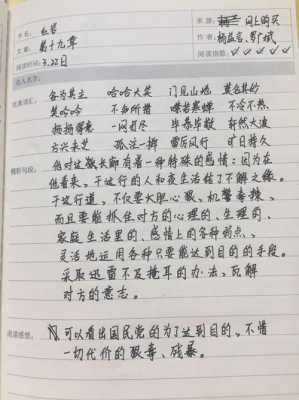 书名: 红岩
来源: 网上购买
文章: 第十九章
作者: 杨益言、罗广斌
阅读时间: 3.22日
阅读指数: ✓ ✓ ✓ ✓ ✓
名人名言:
各为其主 哈哈大笑 门见山地 莫名其妙
优美词汇: 笑吟吟 不和所措 噤若寒蝉 不冷不热
扬扬得意 一网打尽 毕恭毕敬 轩然大波
方兴未艾 孤注一掷 雷厉风行 旷日持久
精彩句段: 他对这职业都有着一种特殊的感情: 因为在
他看来, 干这行的人和夜生活结了不解之缘。
干这行道, 不仅要大胆心狠、机警毒辣、
而且要能抓住对方的心理的、生理的、
家庭生活里的、感情上的各种弱点、
灵活地运用各种只要能达到目的的手段。
采取迅雷不及掩耳的办法、瓦解
对方的意志。
阅读感想: 可以看出国民党的为了达到目的、不惜
一切代价的狠毒、残暴。